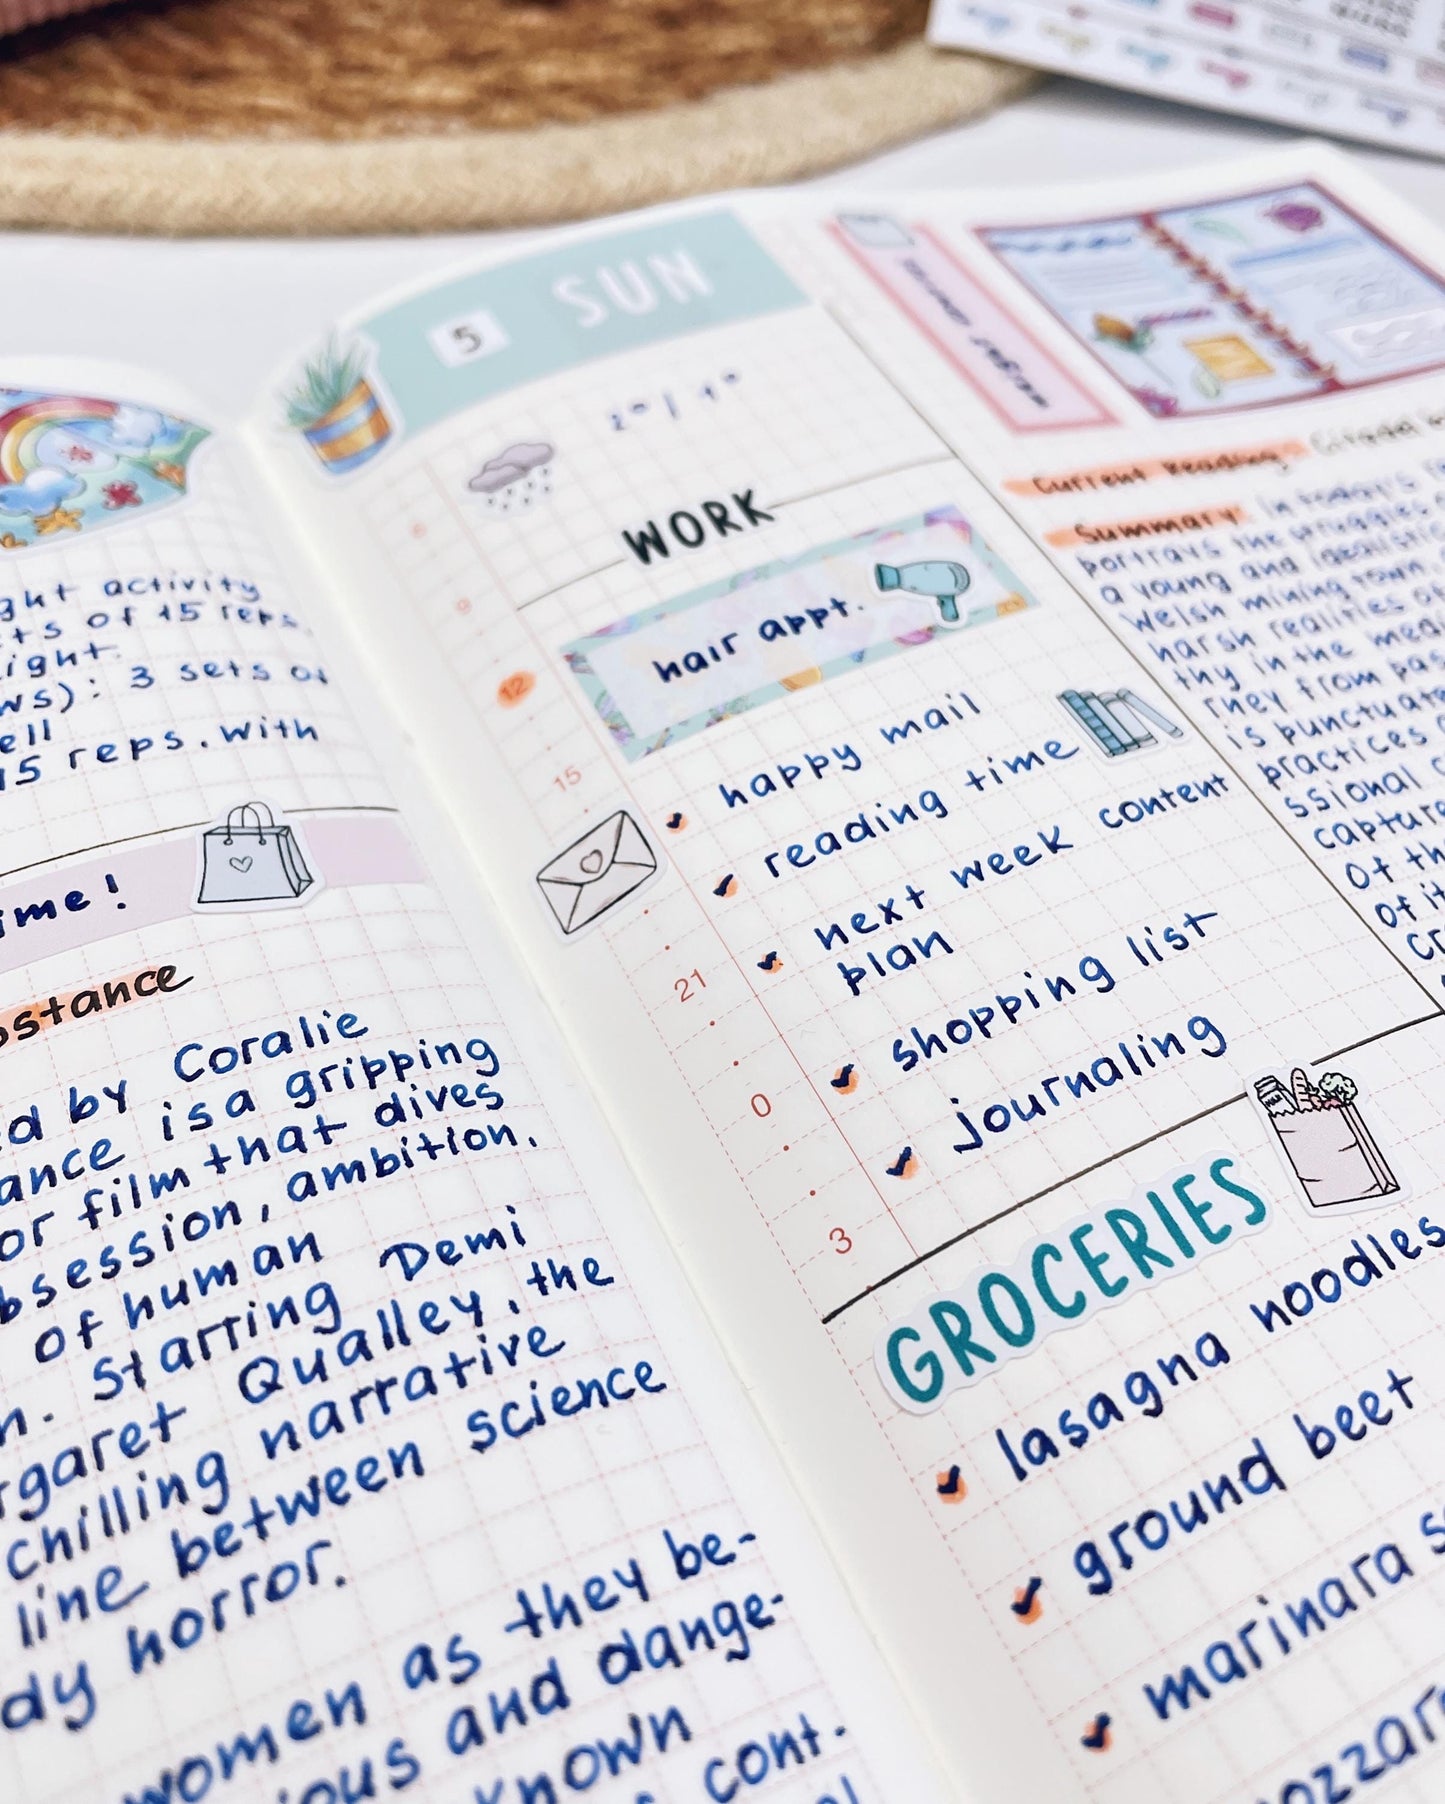 ght activity
ts of 15 reps.
ight.
ws): 3 sets of
ell
15 reps. with
ime!
bstance
ed by Coralie
ance is a gripping
or film that dives
bsession, ambition,
of human
n. Starring Demi
rgaret Qualley, the
chilling narrative
line between science
dy horror.
women as they be-
ious and dange-
known
cont.
5 SUN
WORK
hair appt.
happy mail
reading time
next week content
plan
shopping list
journaling
9
12
15
21
0
3
GROCERIES
lasagna noodles
ground beet
marinara s
ozzar
Current Reading: Citadel
Summary: In today's re
portrays the struggles
a young and idealistic
Welsh mining town.
harsh realities of
thy in the medi
rney from pas
is punctuate
practices
ssional c
capture
of th
of it
cr